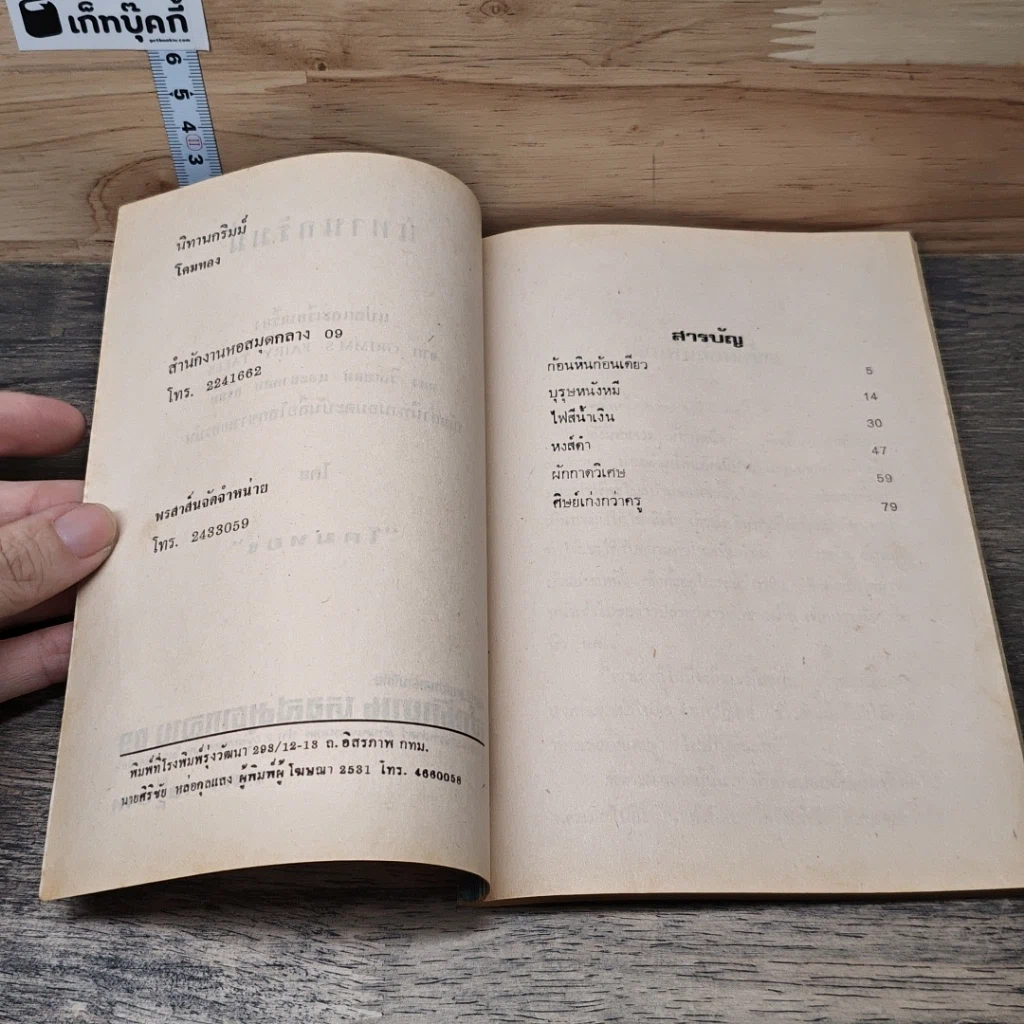 เก็ทบุ๊คกี้
6
5
4
11
3
นิทานกริมม์
โคมทอง
สำนักงานหอสมุดกลาง 09
โทร. 2241662
พรสาส์นจัดจำหน่าย
โทร. 2433059
พิมพ์ที่โรงพิมพ์รุ่งวัฒนา 293/12-13 ถ.อิสรภาพ กทม.
นายศิริชัย หล่อกุลแสง ผู้พิมพ์ผู้โฆษณา 2531 โทร. 4660058
สารบัญ
ก้อนหินก้อนเดียว 5
บุรุษหนังหมี 14
ไฟสีน้ำเงิน 30
หงส์ดำ 47
ผักกาดวิเศษ 59
ศิษย์เก่งกว่าครู 79